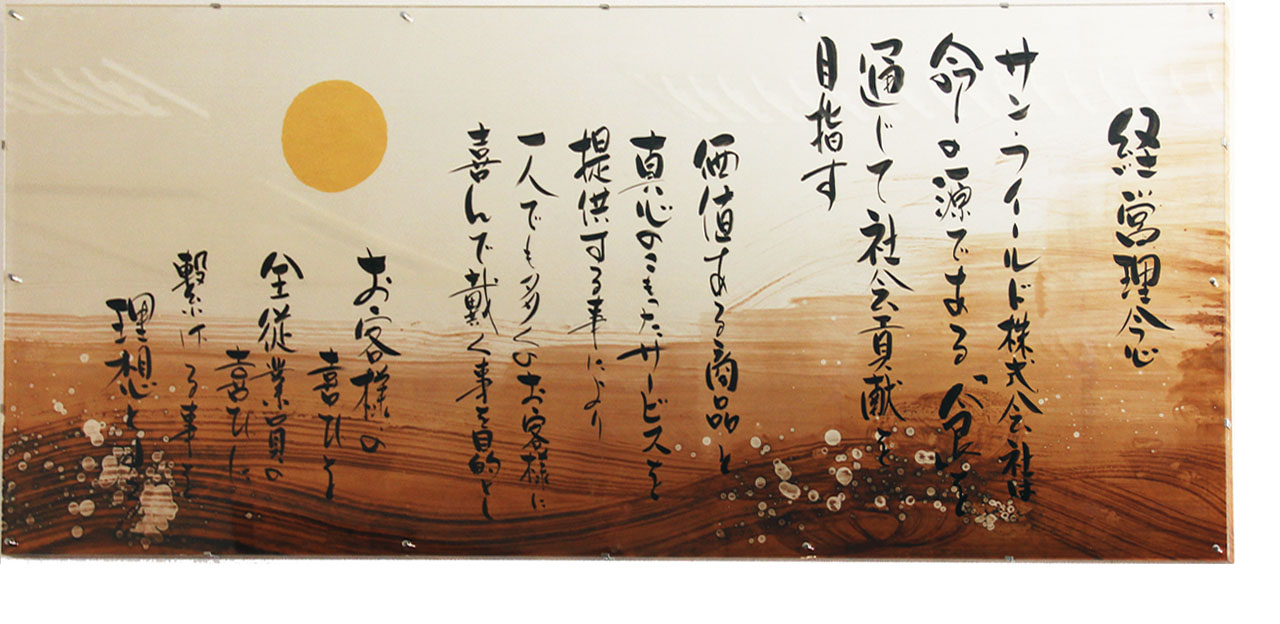 経営理念
サンフィールド株式会社は
命の源である「食」を
通じて社会貢献を
目指す
価値ある商品と
真心のこもったサービスを
提供する事により
一人でも多くのお客様に
喜んで戴く事を目的とし
お客様の
喜びを
全従業員の
喜びに
繋げる事を
理想とする